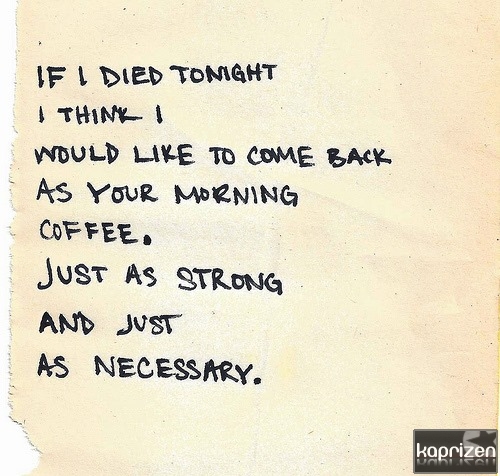 IF I DIED TONIGHT
I THINK I
WOULD LIKE TO COME BACK
AS YOUR MORNING
COFFEE.
JUST AS STRONG
AND JUST
AS NECESSARY.
kaprizen